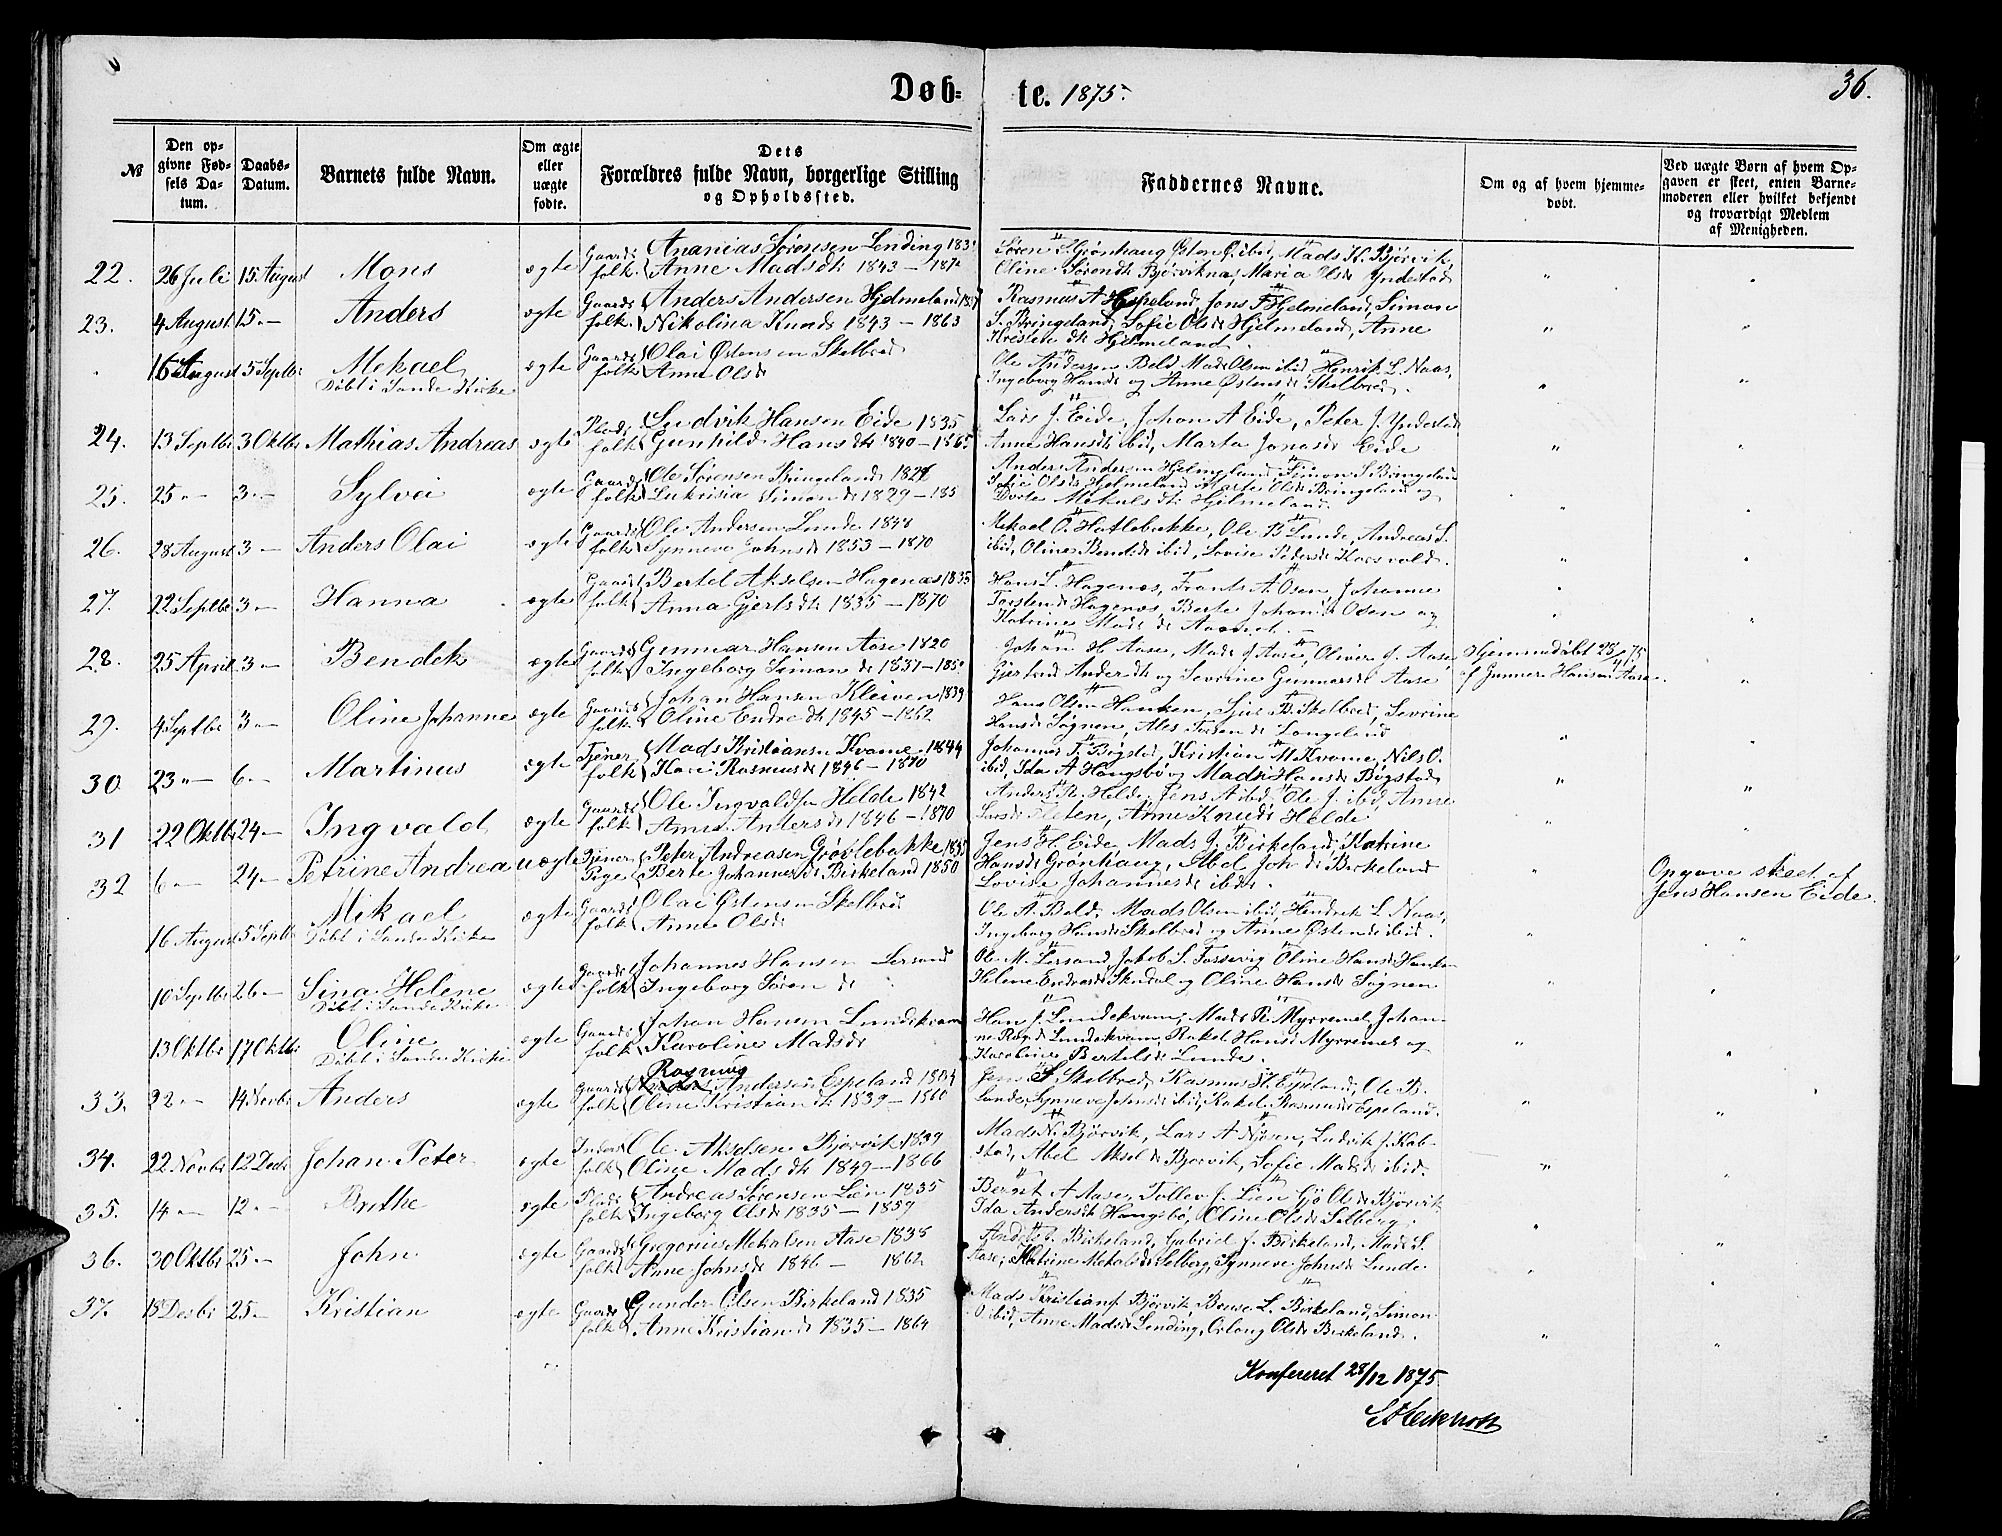 Døb-
te. 1875.
36.
№
Den op-
givne Fød-
sels Da-
tum.
Daabs-
Datum.
Barnets fulde Navn.
Om ægte
eller
uægte
fødte.
Dets
Forældres fulde Navn, borgerlige Stilling
og Opholdssted.
Faddernes Navne.
Om og af hvem hjemme-
døbt.
Ved uægte Børn af hvem Op-
gaven er skeet, enten Barne-
moderen eller hvilket bekjendt
og troværdigt Medlem
af Menigheden.
22. 26 Juli 15 August Mons ægte Gaards folk
Ananias Sørensen Lending
Anne Mads dt 1843 —
Oline Sørendt Bjørvik Maria Olsd Yndestad
23. 4 August 15 — Anders ægte Gaards folk
Anders Andersen Hjelmeland
Nikolina Knuds 1843 — 1863
Rasmus A Espeland, Jens Hjelmeland, Simon
S. Bringeland, Sofie Olsd Hjelmeland, Anne
Kristen dt Hjelmeland.
16 August 5 Septbr Mekael ægte Gaards folk
Døbt i Sande Kirke
Olai Østensen Skelbred
Anne Olsd
Ole Andersen Bold Mads Olsen ibid Henrik L. Naas,
Ingeborg Hansd og Anne Østensd Skelbred.
24. 13 Septbr 3 Oktbr Mathias Andreas ægte Plads folk
Ludvik Hansen Eide 1835
Gunhild Hans dt 1840 — 1865
Lars J. Eide, Johan A Eide, Peter J. Yndestad
Anne Hansdt ibid, Marta Jonasd Eide
25. 25 — 3 — Sylvei ægte Gaards folk
Ole Sørensen Bringeland
Lukrisia Simonsd 1829 —
Anders Andersen Hjelmeland Simon S. Bringeland
Sofie Olsd Hjelmeland Marte Olsd Bringeland og
Dorte Mekals dt Hjelmeland.
26. 28 August 3 — Anders Olai ægte Gaards folk
Ole Andersen Lunde 1848
Synneve Johnsd 1853 — 1870
Mekael O. Hatlebakke, Ole B Lunde, Andreas S.
ibid, Oline Bendtsd ibid, Lovise Pedersd
27. 22 Septbr 3 — Hanna ægte Gaards folk
Bertel Akselsen Hagenæs 1835
Anna Gjerts dt 1835 — 1870
Hans L. Hagenæs, Frants A Osen, Johanne
Torsten d Hagenæs, Berte Johans d Osen og
Katrine Mads d
28. 25 April 3 — Bendek ægte Gaards folk
Gunnar Hansen Aase 1820
Ingeborg Simon dt 1837 —
Johan H Aase, Mads J Aase, Olivera J. Aase
Gjertrud Anders dt og Severine Gunnarsd Aase
Hjemmedøbt 25/4 75
af Gunnar Hansen Aase.
29. 4 Septbr 3 — Oline Johanne ægte Gaards folk
Johan Hansen Kleiven 1839
Oline Endre dt 1845 — 1862
Hans Olsen Hanken, Sjur B Skelbred, Severine
Hansd Søgnen, Ales Torsend Langeland
30 23 — 6 — Martinus ægte Tjener folk
Mads Kristiansn Kvame 1844
Kari Rasmusd 1846 — 1870
Johannes T. Bøgstad, Kristian M Kvame, Nils O.
ibid, Ida A Hangsbø og Mads Hansd Bøgstad
31 22 Oktbr 24 — Ingvald ægte Gaards folk
Ole Ingvalds Helde 1842
Anne Anders d 1846 — 1870
Anders R. Helde, Jens A ibid, Ole J. ibid, Anne
Larsd Fleten, Anne Knuds Helde
32 6 — 24 — Petrine Andrea uægte Tjener Pige
Peter Andreasen Grøvlebakke 1835
Berte Johannesd Birkeland 1850
Jens H. Eide, Mads J. Birkeland, Katrine
Hansd Grønhaug, Abel Joh d Birkeland
Lovise Johannesd ibid.
Opgave skeet af
Jens Hansen Eide.
16 August 5 Septbr Mikael ægte Gaards folk
Døbt i Sande Kirke
Olai Østensen Skelbred
Anne Olsd
Ole A. Bold, Mads Olsen ibid, Hendrik L. Naas,
Ingeborg Hansd Skelbred og Anne Østensd ibid.
10 Septbr 26 — Sina Helene ægte Gaards folk
Døbt i Sande Kirke
Johannes Hansen Lersand
Ingeborg Søren d
Ole M. Lersand, Jakob S. Fossevig Oline Hansd Hanken
Helene Endresd Skudal og Oline Hansd Søgnen
13 Oktbr 17 Oktbr Oline ægte Gaards folk
Døbt i Sande Kirke
Johan Hansen Lundekvam
Karoline Madsd
Hans J. Lundekvam, Mads P. Myrremel, Johan-
ne Rogd Lundekvam, Rakel Hansd Myrremel og
Karoline Bertelsd Lunde.
33. 22 — 14 Novbr Anders ægte Gaards folk
Rasmus
Andersen Espeland 1834
Oline Kristian dt 1839 — 1860
Jens S. Skelbred Rasmus H. Espeland, Ole B.
Lunde, Synneve Johnsd ibid, Rakel Rasmusd Espeland.
34. 22 Novbr 12 Decbr Johan Peter ægte Inders folk
Ole Akselsen Bjørvik 1839
Oline Mads dt 1849 — 1866
Mads N. Bjørvik, Lars A Nøsen, Ludvik J. Kob-
stad, Abel Aksel d Bjørvik, Sofie Mads d ibid.
35. 14 — 12 — Brithe ægte Plads folk
Andreas Sørensen Lien 1835
Ingeborg Olsd 1835 — 1859
Bernt A Aase, Tollev J. Lien Gjø Olsd Bjørvik
Ida Andersdt Hangsbø, Oline Olsd Selberg.
36. 30 Oktbr 25 — John ægte Gaards folk
Gregorius Mekalsen Aase 1838
Anne Johnsd 1846 — 1862
Anders S. Birkeland, Gabriel J. Birkeland, Mads S.
Aase, Katrine Mekalsd Selberg, Synneve Johnsd Lunde
37. 18 Desbr 25 — Kristian ægte Gaards folk
Gunder Olsen Birkeland 1835
Anne Kristian d 1835 — 1864
Mads Kristians. Bjørvik, Bense L. Birkeland, Simon
O ibid, Anne Madsd Lending, Orlong Olsd Birkeland.
Konfereret 28/12 1875